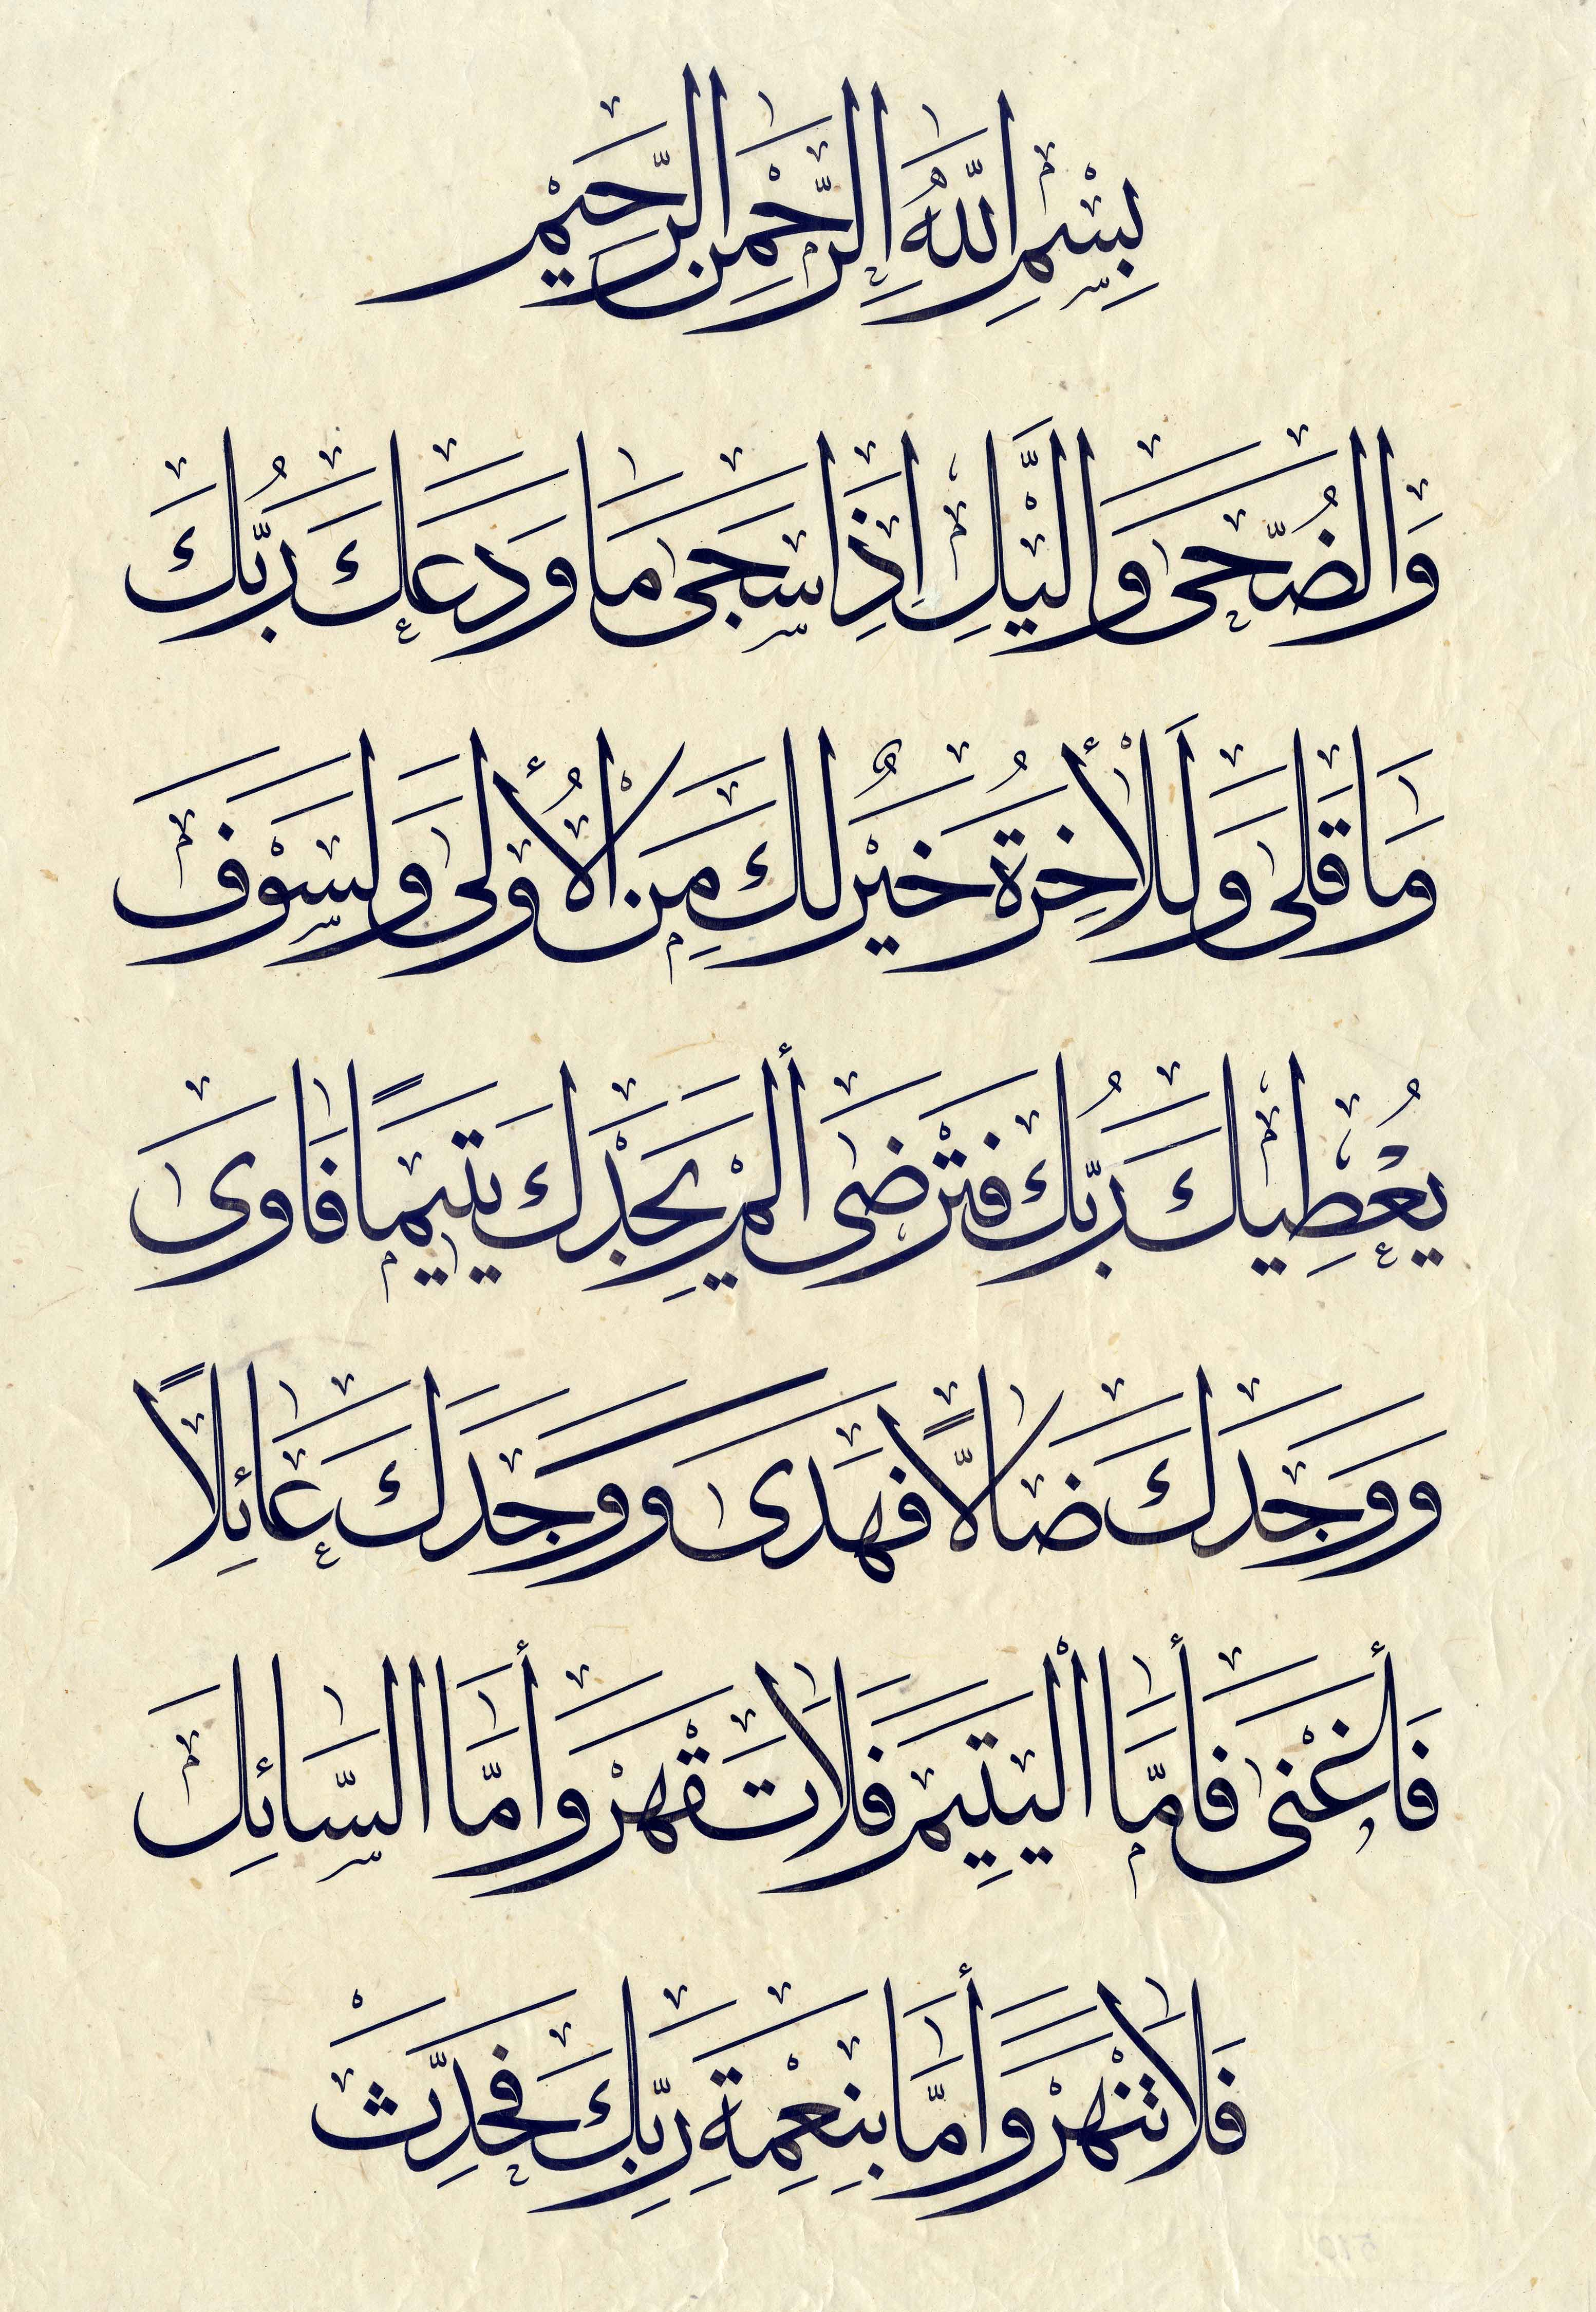 بِسْمِ اللّٰهِ الرَّحْمٰنِ الرَّحِيْمِ
وَالضُّحٰى وَالَّيْلِ اِذَا سَجٰى مَا وَدَعَكَ رَبُّكَ
وَمَا قَلٰى وَلَلْأٰخِرَةُ خَيْرٌ لَكَ مِنَ الْأُولٰى وَلَسَوْفَ
يُعْطِيكَ رَبُّكَ فَتَرْضٰى أَلَمْ يَجِدْكَ يَتِيمًا فَاٰوٰى
وَوَجَدَكَ ضَالًّا فَهَدٰى وَوَجَدَكَ عَائِلًا
فَأَغْنٰى فَأَمَّا الْيَتِيمَ فَلَا تَقْهَرْ وَأَمَّا السَّائِلَ
فَلَا تَنْهَرْ وَأَمَّا بِنِعْمَةِ رَبِّكَ فَحَدِّثْ